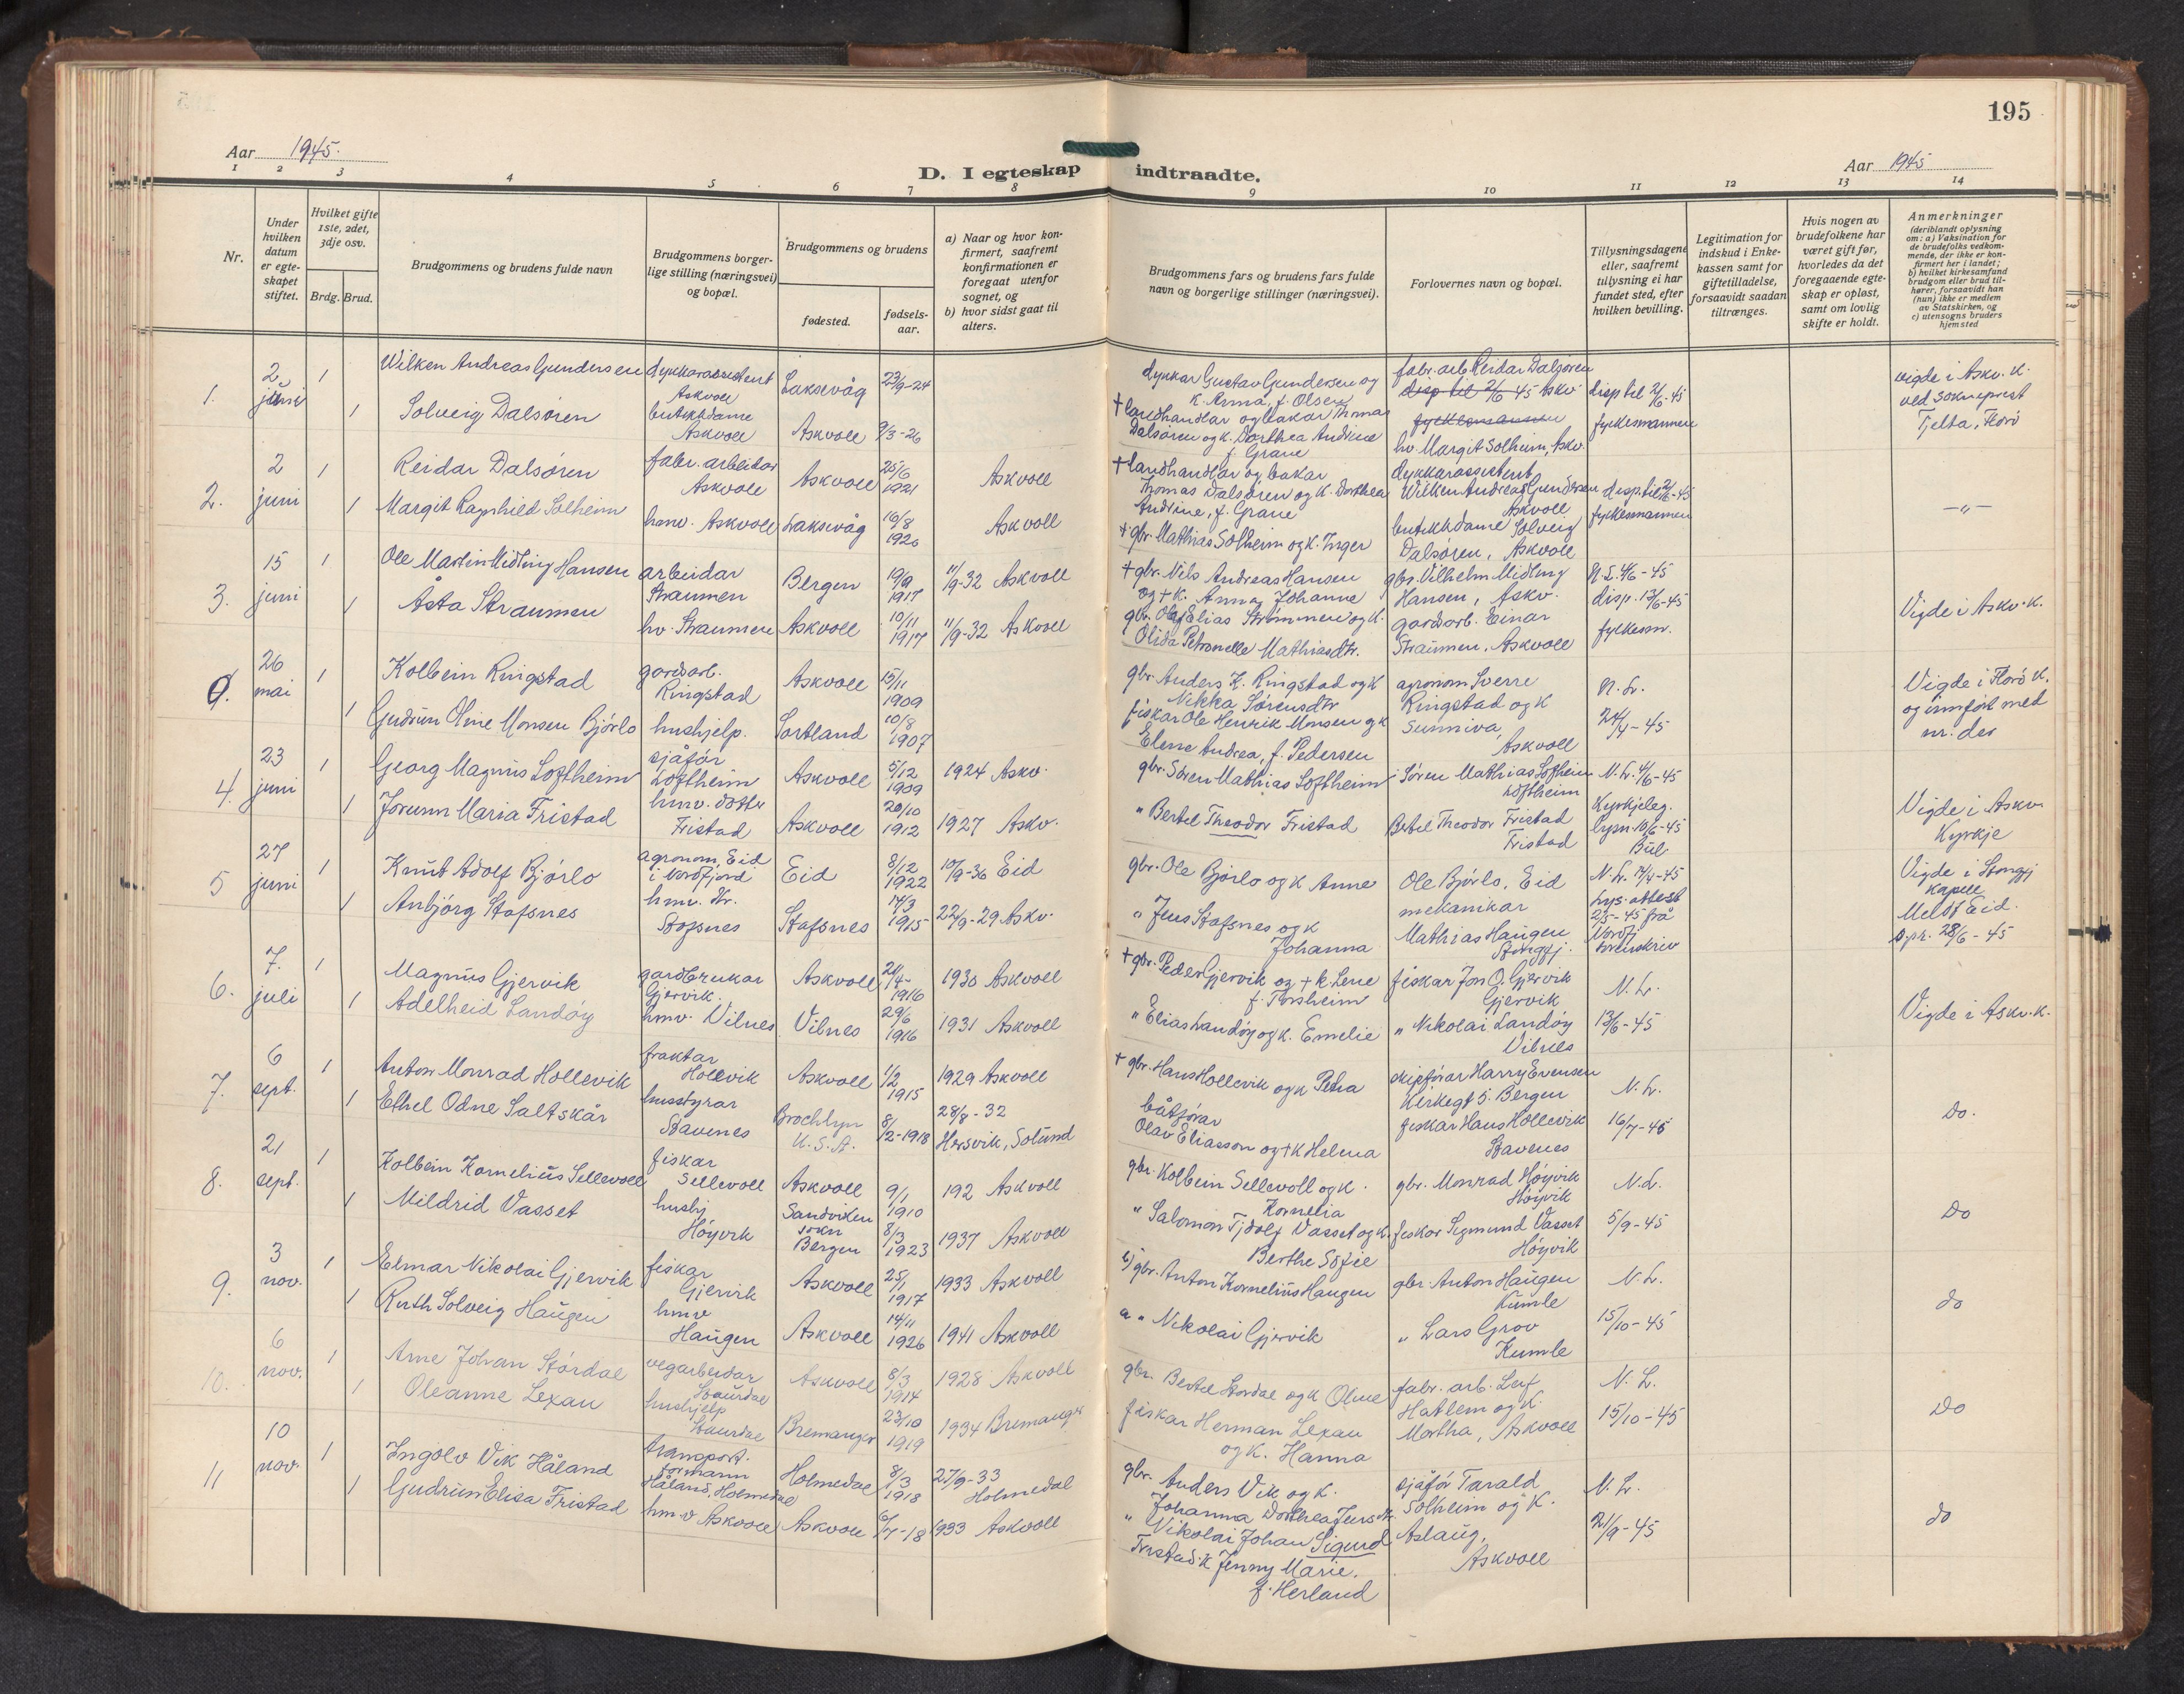 195
Aar 1945.
D. I egteskap indtraadte.
Aar 1945
1 2 3 4 5 6 7 8 9 10 11 12 13 14
Nr.
Under hvilken datum er egte-skapet stiftet.
Hvilket gifte 1ste, 2det, 3dje osv.
Brdg. Brud.
Brudgommens og brudens fulde navn
Brudgommens borger-lige stilling (næringsvei) og bopæl.
Brudgommens og brudens
fødested.
fødsels-aar.
a) Naar og hvor kon-firmert, saafremt konfirmationen er foregaat utenfor sognet, og
b) hvor sidst gaat til alters.
Brudgommens fars og brudens fars fulde navn og borgerlige stillinger (næringsvei).
Forlovernes navn og bopæl.
Tillysningsdagene eller, saafremt tillysning ei har fundet sted, efter hvilken bevilling.
Legitimation for indskud i Enke-kassen samt for giftetilladelse, forsaavidt saadan tiltrænges.
Hvis nogen av brudefolkene har været gift før, hvorledes da det foregaaende egte-skap er opløst, samt om lovlig skifte er holdt.
Anmerkninger (deriblandt oplysning om: a) Vaksination for de brudefolks vedkom-mende, der ikke er kon-firmert her i landet; b) hvilket kirkesamfund brudgom eller brud til-hører, forsaavidt han (hun) ikke er medlem av Statskirken, og c) utensogns bruders hjemsted
1. 2 juni 1 Wilken Andreas Gundersen dykkarassistent Askvoll Laksevåg 23/9-24
1 Solveig Dalsøren butikkdame Askvoll Askvoll 9/3-26
dykkar Gustav Gundersen og k. Anna, f. Olsen
† landhandlar og bakar Thomas Dalsøren og k. Dorthea Andrine f. Grane
fabr. arb Reidar Dalsøren
disp til 2/6 45 Askv.
fylkesmannen
hv. Margit Solheim, Askv.
disp til 2/6-45 fylkesmannen
vigde i Askv. K. ved sokneprest Tjelta, Florø
2. 2 juni 1 Reidar Dalsøren fabr. arbeidar Askvoll Askvoll 25/6 1921 Askvoll
1 Margit Ragnhild Solheim hmv. Askvoll Laksevåg 16/8 1920 Askvoll
† landhandlar og bakar Thomas Dalsøren og k. Dorthea Andrine, f. Grane
† gbr. Mathias Solheim og k. Inger
dykkarassistent Wilken Andreas Gundersen Askvoll
butikkdame Solveig Dalsøren, Askvoll
disp. til 2/6-45 fylkesmannen
— " —
3. 15 juni 1 Ole Martin Midling Hansen arbeidar Straumen Bergen 19/9 1917 11/9-32 Askvoll
1 Åsta Straumen hv. Straumen Askvoll 10/11 1917 11/9-32 Askvoll
† gbr. Nils Andreas Hansen og † k. Anna Johanne
gbr. Olaf Elias Strømmen og k. Olida Petronelle Mathiasdtr.
gbr. Vilhelm Midling Hansen, Askv.
gardarb. Einar Straumen, Askvoll
N.L. 4/6-45 disp. 13/6-45 fylkesm.
Vigde i Askv. K.
0. 26 mai 1 Kolbein Ringstad gardarb. Ringstad Askvoll 15/11 1909
1 Gudrun Oline Monsen Bjørlo hushjelp. Sortland 10/8 1907
gbr. Anders K. Ringstad og k Nikka Sørensdtr
fiskar Ole Henrik Monsen og k Elene Andrea, f. Pedersen
agronom Sverre Ringstad og k Sunniva, Askvoll
N. L. 24/4-45
Vigde i Florø K. og innført med nr. der
4. 23 juni 1 Georg Magnus Loftheim sjåfør Loftheim Askvoll 5/12 1909 1924 Askv.
1 Jorunn Maria Fristad hmv. dotter Fristad Askvoll 20/10 1912 1927 Askv.
gbr. Søren Mathias Loftheim
" Bertel Theodor Fristad
Søren Mathias Loftheim Loftheim
Bertel Theodor Fristad Fristad
N. L. 4/6-45 Kyrkjeleg. lysn. 10/6-45 Bul.
Vigde i Askv. Kyrkje
5 27 juni 1 Knut Adolf Bjørlo agronom, Eid i Nordfjord Eid 8/12 1922 10/9-36 Eid
1 Anbjørg Stafsnes hmv. Str. Stafsnes Stafsnes 14/3 1915 22/9-29 Askv.
gbr. Ole Bjørlo og k Anne
" Jens Stafsnes og k Johanna
Ole Bjørlo, Eid
mekanikar Mathias Haugen Stongfj.
N. L. 17/4-45 Lys. attest 2/5-45 frå Nordfj sorenskriv
Vigde i Stongfj kapell
Meldt Eid. s.pr. 28/6-45
6. 7. juli 1 Magnus Gjervik gardbrukar Gjervik. Askvoll 20/4- 1916 1930 Askvoll
1 Adelheid Landøy hmv. Vilnes Vilnes 29/6 1916 1931 Askvoll
† gbr. Peder Gjervik og † k. Lene f. Torsheim
" Elias Landøy og k. Emelie
fiskar Jon O. Gjervik Gjervik
" Nikolai Landøy Vilnes
N. L. 13/6-45
Vigde i Askv. K.
7. 6 sept. 1 Anton Monrad Hollevik fraktar Hollevik Askvoll 1/2 1915 1929 Askvoll
1 Ethel Odne Saltskår husstyrar Stavenes Brochlyn U.S.A. 8/2-1918 28/8-32 Hersvik, Solund
† gbr. Hans Hollevik og k Petra
båtførar Olav Eliasson og † k Helena
skipførar Harry Evensen Kirkegt 5. Bergen
fiskar Hans Hollevik Stavenes
N. L. 16/7-45
Do.
8. 21 sept. 1 Kolbein Kornelius Sellevoll fiskar Sellevoll Askvoll 9/1 1910 192 Askvoll
1 Mildrid Vasset hushj Høyvik Sandviken sokn Bergen 8/3 1923 1937 Askvoll
gbr. Kolbein Sellevoll og k. Kornelia
" Salomon Tjdolf Vasset og k. Berthe Sofie
gbr. Monrad Høyvik Høyvik
fiskar Sigmund Vasset Høyvik
N. L. 5/9-45
Do
9. 3 nov. 1 Elmar Nikolai Gjervik fiskar Gjervik Askvoll 25/1 1917 1933 Askvoll
1 Ruth Solveig Haugen hmv Haugen Askvoll 14/11 1926 1941 Askvoll
b) gbr. Anton Kornelius Haugen
a " Nikolai Gjervik
gbr. Anton Haugen Kumle
" Lars Grov Kumle
N. L. 15/10-45
do
10. 6 nov. 1 Arne Johan Stórdal vegarbeidar Staurdal Askvoll 8/3 1914 1928 Askvoll
1 Oleanne Lexau hushjelp Staurdal Bremanger 23/10 1919 1934 Bremanger
gbr. Bertel Stordal og k Oline
fiskar Herman Lexau og k. Hanna
fabr. arb. Leif Hatlem og k. Martha, Askvoll
N. L. 15/10-45
Do
11 10 nov. 1 Ingolv Vik Håland transport. formann Håland, Holmedal Holmedal 8/3 1918 27/9-33 Holmedal
1 Gudrun Elisa Fristad hm.v Askvoll Askvoll 6/7-18 1933 Askvoll
gbr. Anders Vik og k. Johanna Dorthea Jensdtr.
" Nikolai Johan Sigurd Fristad. k Jenny Marie. f. Herland
sjåfør Tarald Solheim og k. Aslaug, Askvoll
N. L. 21/9-45
do